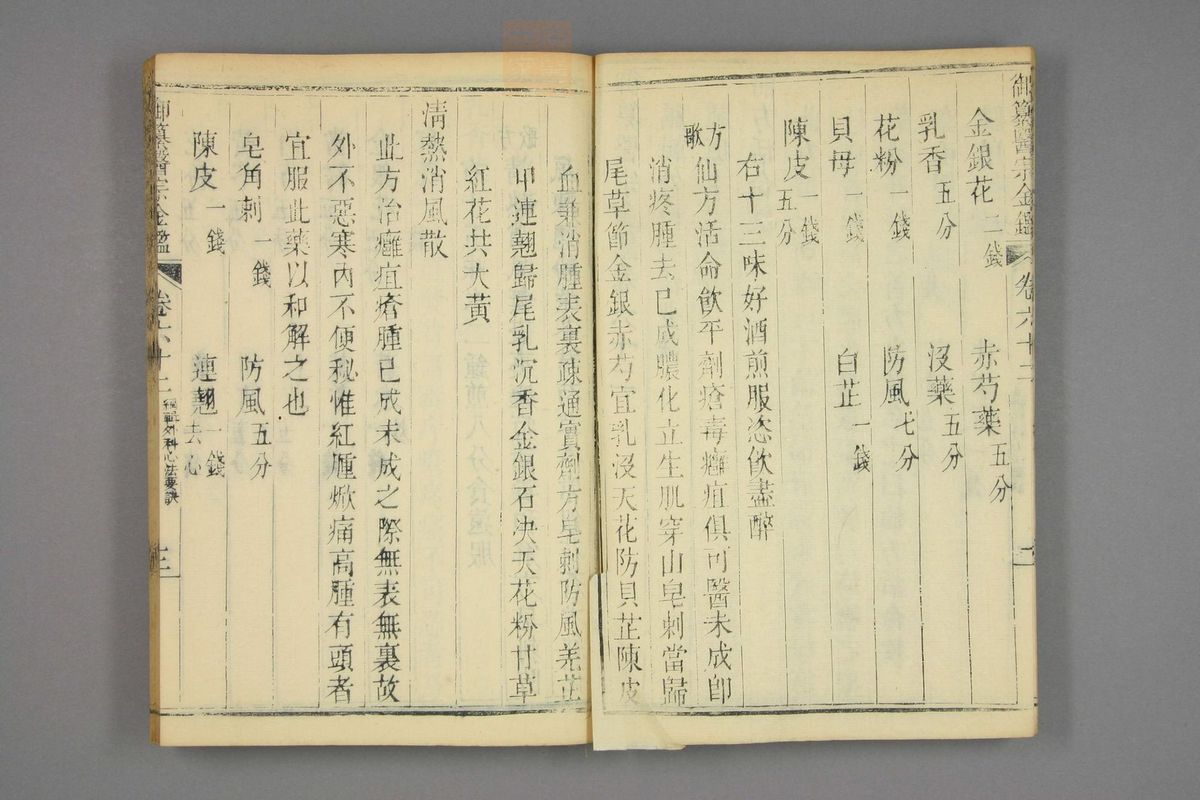 御纂醫宗金鑑 卷六十二
金銀花二錢 赤芍藥五分
乳香五分 沒藥五分
花粉一錢 防風七分
貝母一錢 白芷一錢
陳皮一錢五分
右十三味好酒煎服恣飲盡醉
方歌 仙方活命飲平劑瘡毒癰疽俱可醫未成卽
消疼腫去已成膿化立生肌穿山皂刺當歸
尾草節金銀赤芍宜乳沒天花防貝芷陳皮
血兼消腫表裏疎通實劑方皂刺防風羌芷
甲連翹歸尾乳沉香金銀石決天花粉甘草
紅花共大黃
清熱消風散
此方治癰疽瘡腫已成未成之際無表無裏故
外不惡寒內不便秘惟紅腫焮痛高腫有頭者
宜服此藥以和解之也
皂角刺一錢 防風五分
陳皮一錢 連翹一錢去心
御纂醫宗金鑑 卷六十二 編輯外科心法要訣 三